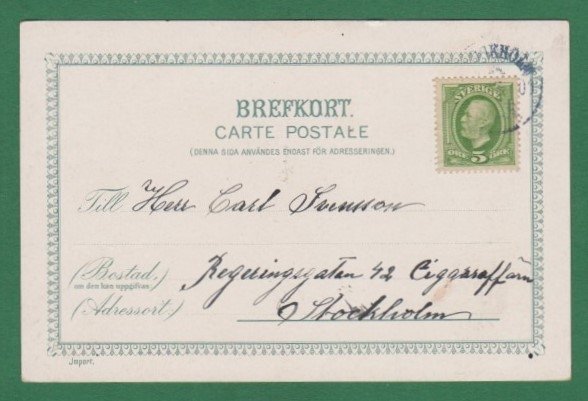 BREFKORT.
CARTE POSTALE
(DENNA SIDA ANVÄNDES ENDAST FÖR ADRESSERINGEN.)
SVERIGE
ÖRE 5 ÖRE
Till Herr Carl Svensson
(Bostad.
om den kan uppgifvas)
Regeringsgatan 42 Ciggarraffärn
(Adressort.)
Stockholm
Import.